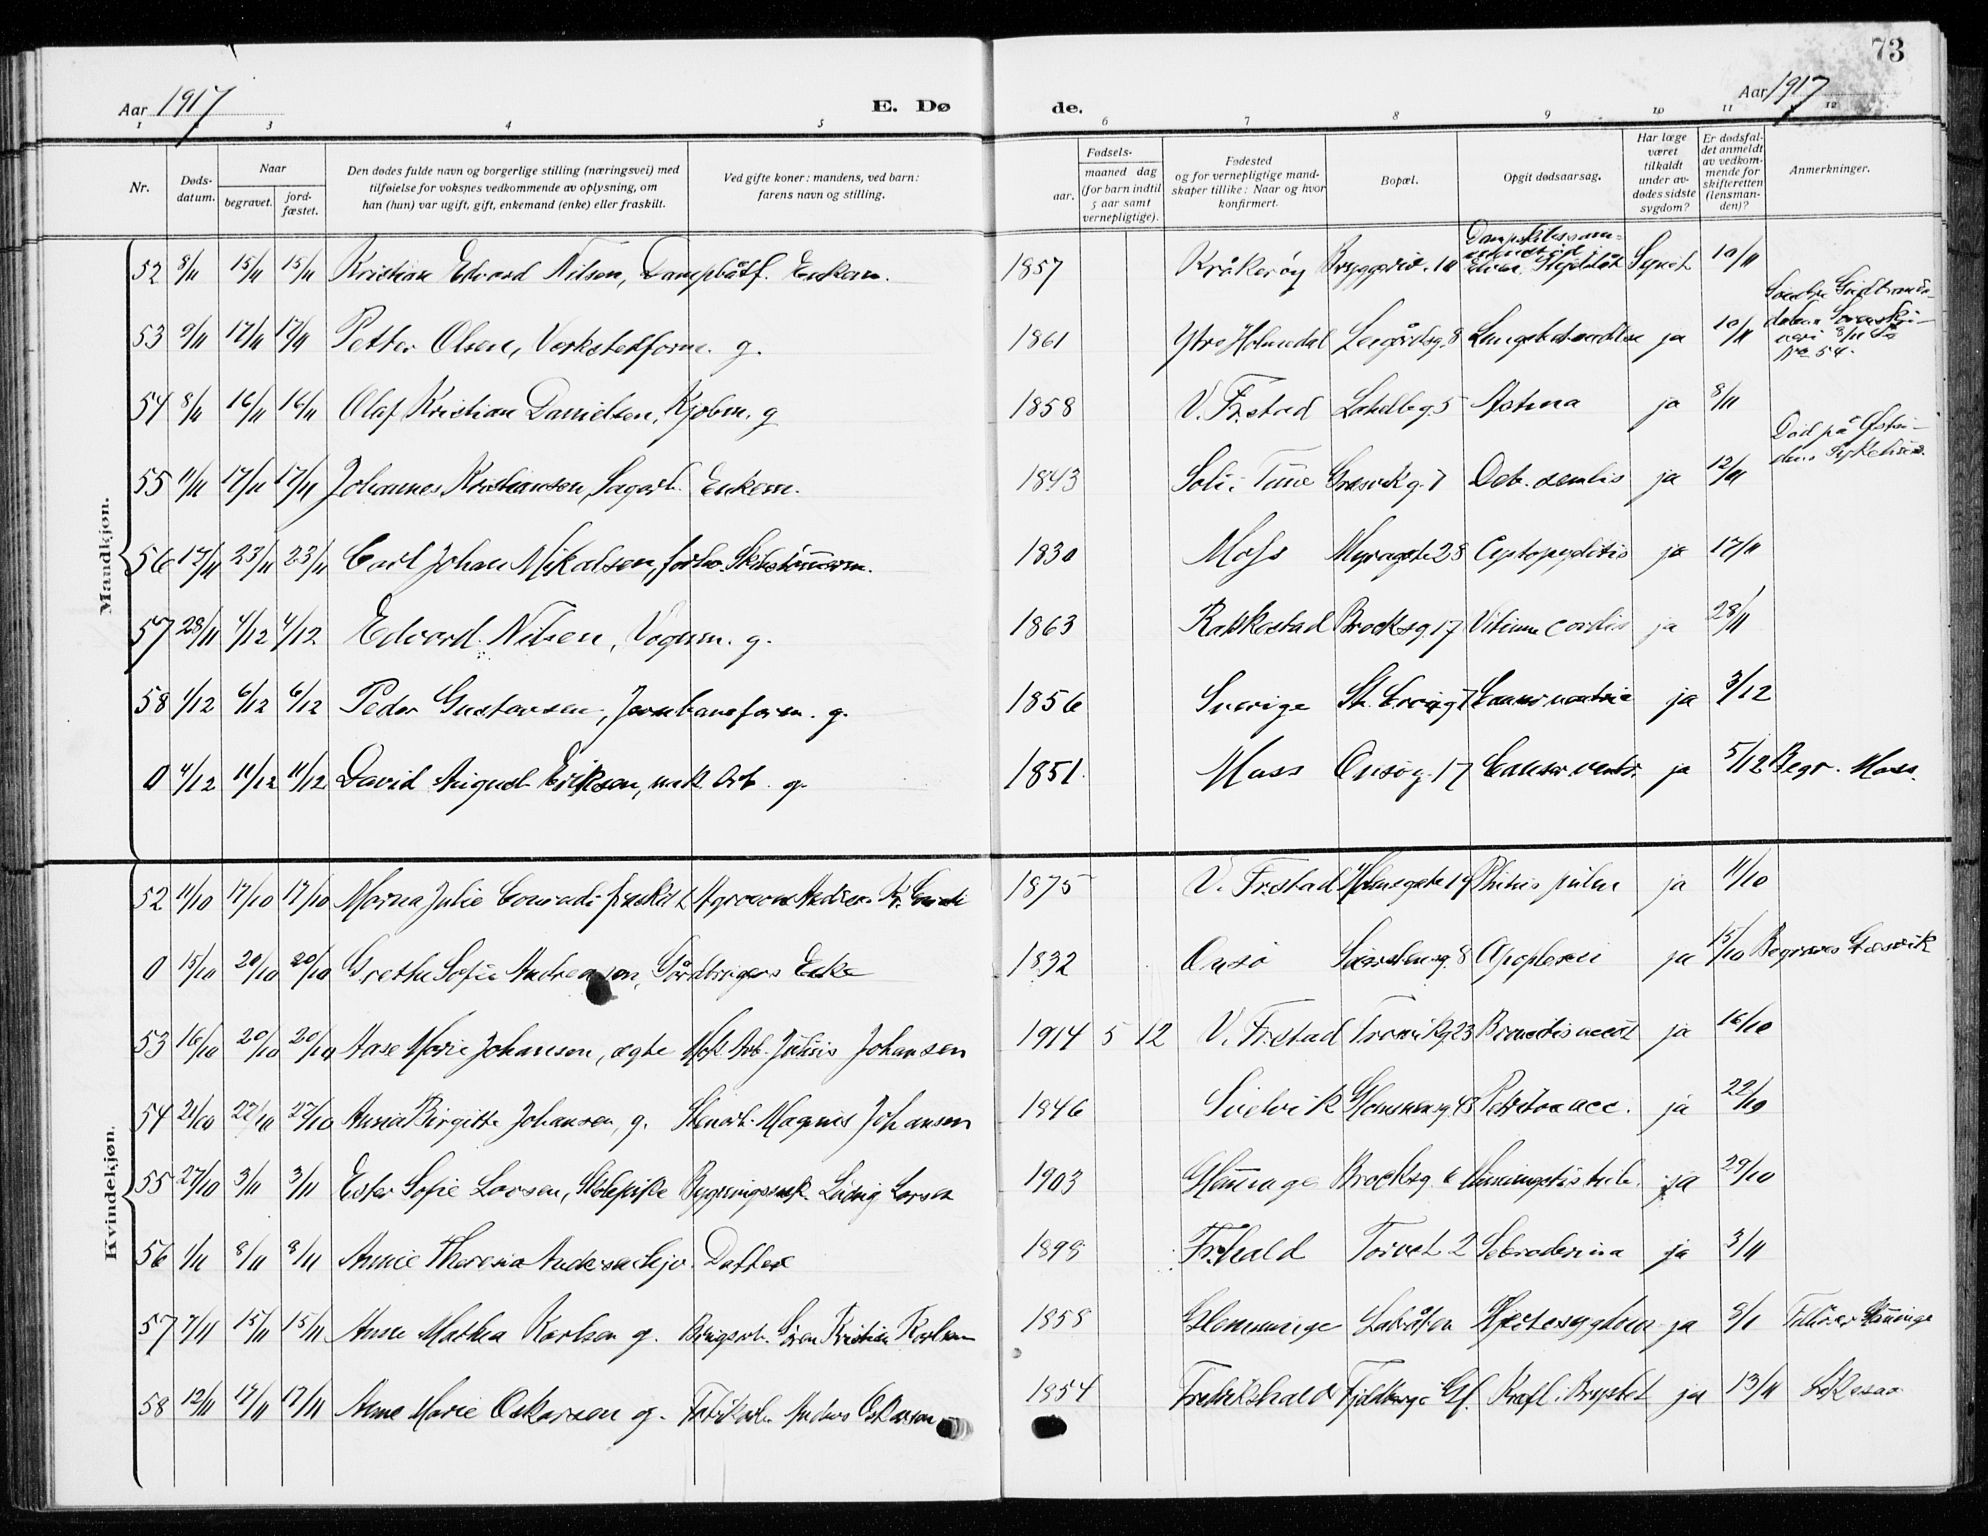 73
Aar 1917
E. Dø
de.
Aar 1917
1 2 3 4 5 6 7 8 9 10 11 12
Nr.
Døds-
datum.
Naar
begravet.
jord-
fæstet.
Den dødes fulde navn og borgerlige stilling (næringsvei) med
tilføielse for voksnes vedkommende av oplysning, om
han (hun) var ugift, gift, enkemand (enke) eller fraskilt.
Ved gifte koner: mandens, ved barn:
farens navn og stilling.
Fødsels-
aar.
maaned dag
(for barn indtil
5 aar samt
vernepligtige).
Fødested
og for vernepligtige mand-
skaper tillike: Naar og hvor
konfirmert.
Bopæl.
Opgit dødsaarsag.
Har læge
været
tilkaldt
under av-
dødes sidste
sygdom?
Er dødsfal-
det anmeldt
av vedkom-
mende for
skifteretten
(lensman-
den)?
Anmerkninger.
Mandkjøn.
52 8/11 15/11 15/11 Kristian Edvard Nilsen, Dampbåtf. Enkem. 1857 Kråkerøy Bryggeriv. 10 Synet 10/11
53 9/11 17/11 17/11 Petter Olsen, Verkstetform. g. 1861 Ytre Holmedal 8 Lungebetændelse ja 10/11 No 54.
54 8/11 16/11 16/11 Olaf Kristian Danielsen, Kjøbm. g 1858 V. Fr.stad 5 Astma ja 8/11
55 11/11 17/11 17/11 Johannes Kristiansen, Sagarb. Enkem. 1843 Soli i Tune Gresvikg. 7 Deb. senilis ja 12/11 Død på Østsi-
dens Sykehus.
56 17/11 23/11 23/11 Carl Johan Mikalsen, forhv. Skibstømmerm. 1830 Moss Myragate 28 Cystopyelitis ja 17/11
57 28/11 4/12 4/12 Edvard Nilsen, Vognm. g. 1863 Rakkestad Brocksg. 17 Vitium cordis ja 28/11
58 1/12 6/12 6/12 Peder Gustavsen, Jernbaneform. g. 1856 Sverige ja 3/12
0 4/12 11/12 11/12 David August Erikson, mek. Arb. g. 1851 Moss Onsøg. 17 Cancer ventr. ja 5/12 Begr. Moss.
Kvindekjøn.
52 11/10 17/10 17/10 Marna Julie Conradi fraskilt 1875 V. Fr.stad Holmegate 19 Phtisis pulm ja 11/10
0 15/10 20/10 20/10 Grethe Sofie Andreassen, Gårdbrugers Enke 1832 Onsø 8 Apoplexi ja 15/10 Begraves Gresvik
53 16/10 20/10 20/10 Aase Marie Johansen, ægte Mek. Arb. Julius Johansen 1914 5 12 V. Fr.stad Trosvikg. 23 ja 16/10
54 21/10 27/10 27/10 Anna Birgitte Johansen, g. Stenarb. Magnus Johansen 1846 Svelvik Glemmeng. 43 ja 22/10
55 27/10 3/11 3/11 Ester Sofie Larsen, Skolepike Bygningssnek. Ludvig Larsen 1903 Glemminge Brocksg. 6 Meningitis tub. ja 29/10
56 1/11 8/11 8/11 Annie Theresia Datter 1898 Fr.hald Torvet 2 Sclerodermia ja 3/11
57 7/11 15/11 15/11 Anne Mathea Karlsen g. Brugsarb. Sören Kristian Karlsen 1858 Glemminge Labråten Hjertesygdom ja 9/1 Tilhører Glemminge
58 12/11 17/11 17/11 Anne Marie Oskarsen g. Fabrikarb. Anders Oskarsen 1854 Fredrikshald Fjeldberg Gl. Kræft i Brystet ja 13/11